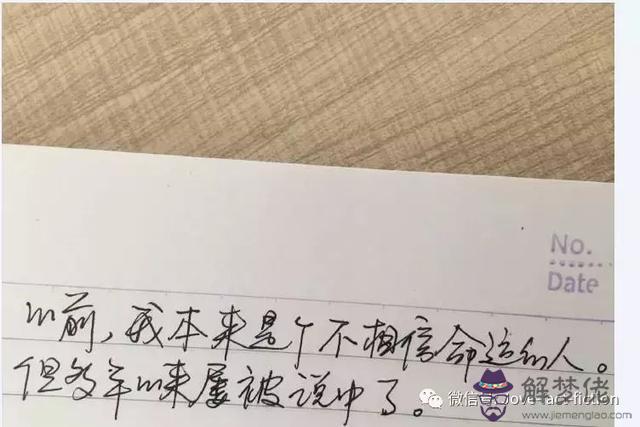 No.
Date
以前，我本来是个不相信命运的人。
但多年以来屡被说中了。
微信号：love-act-fiction
解梦佬
www.jiemenglao.com